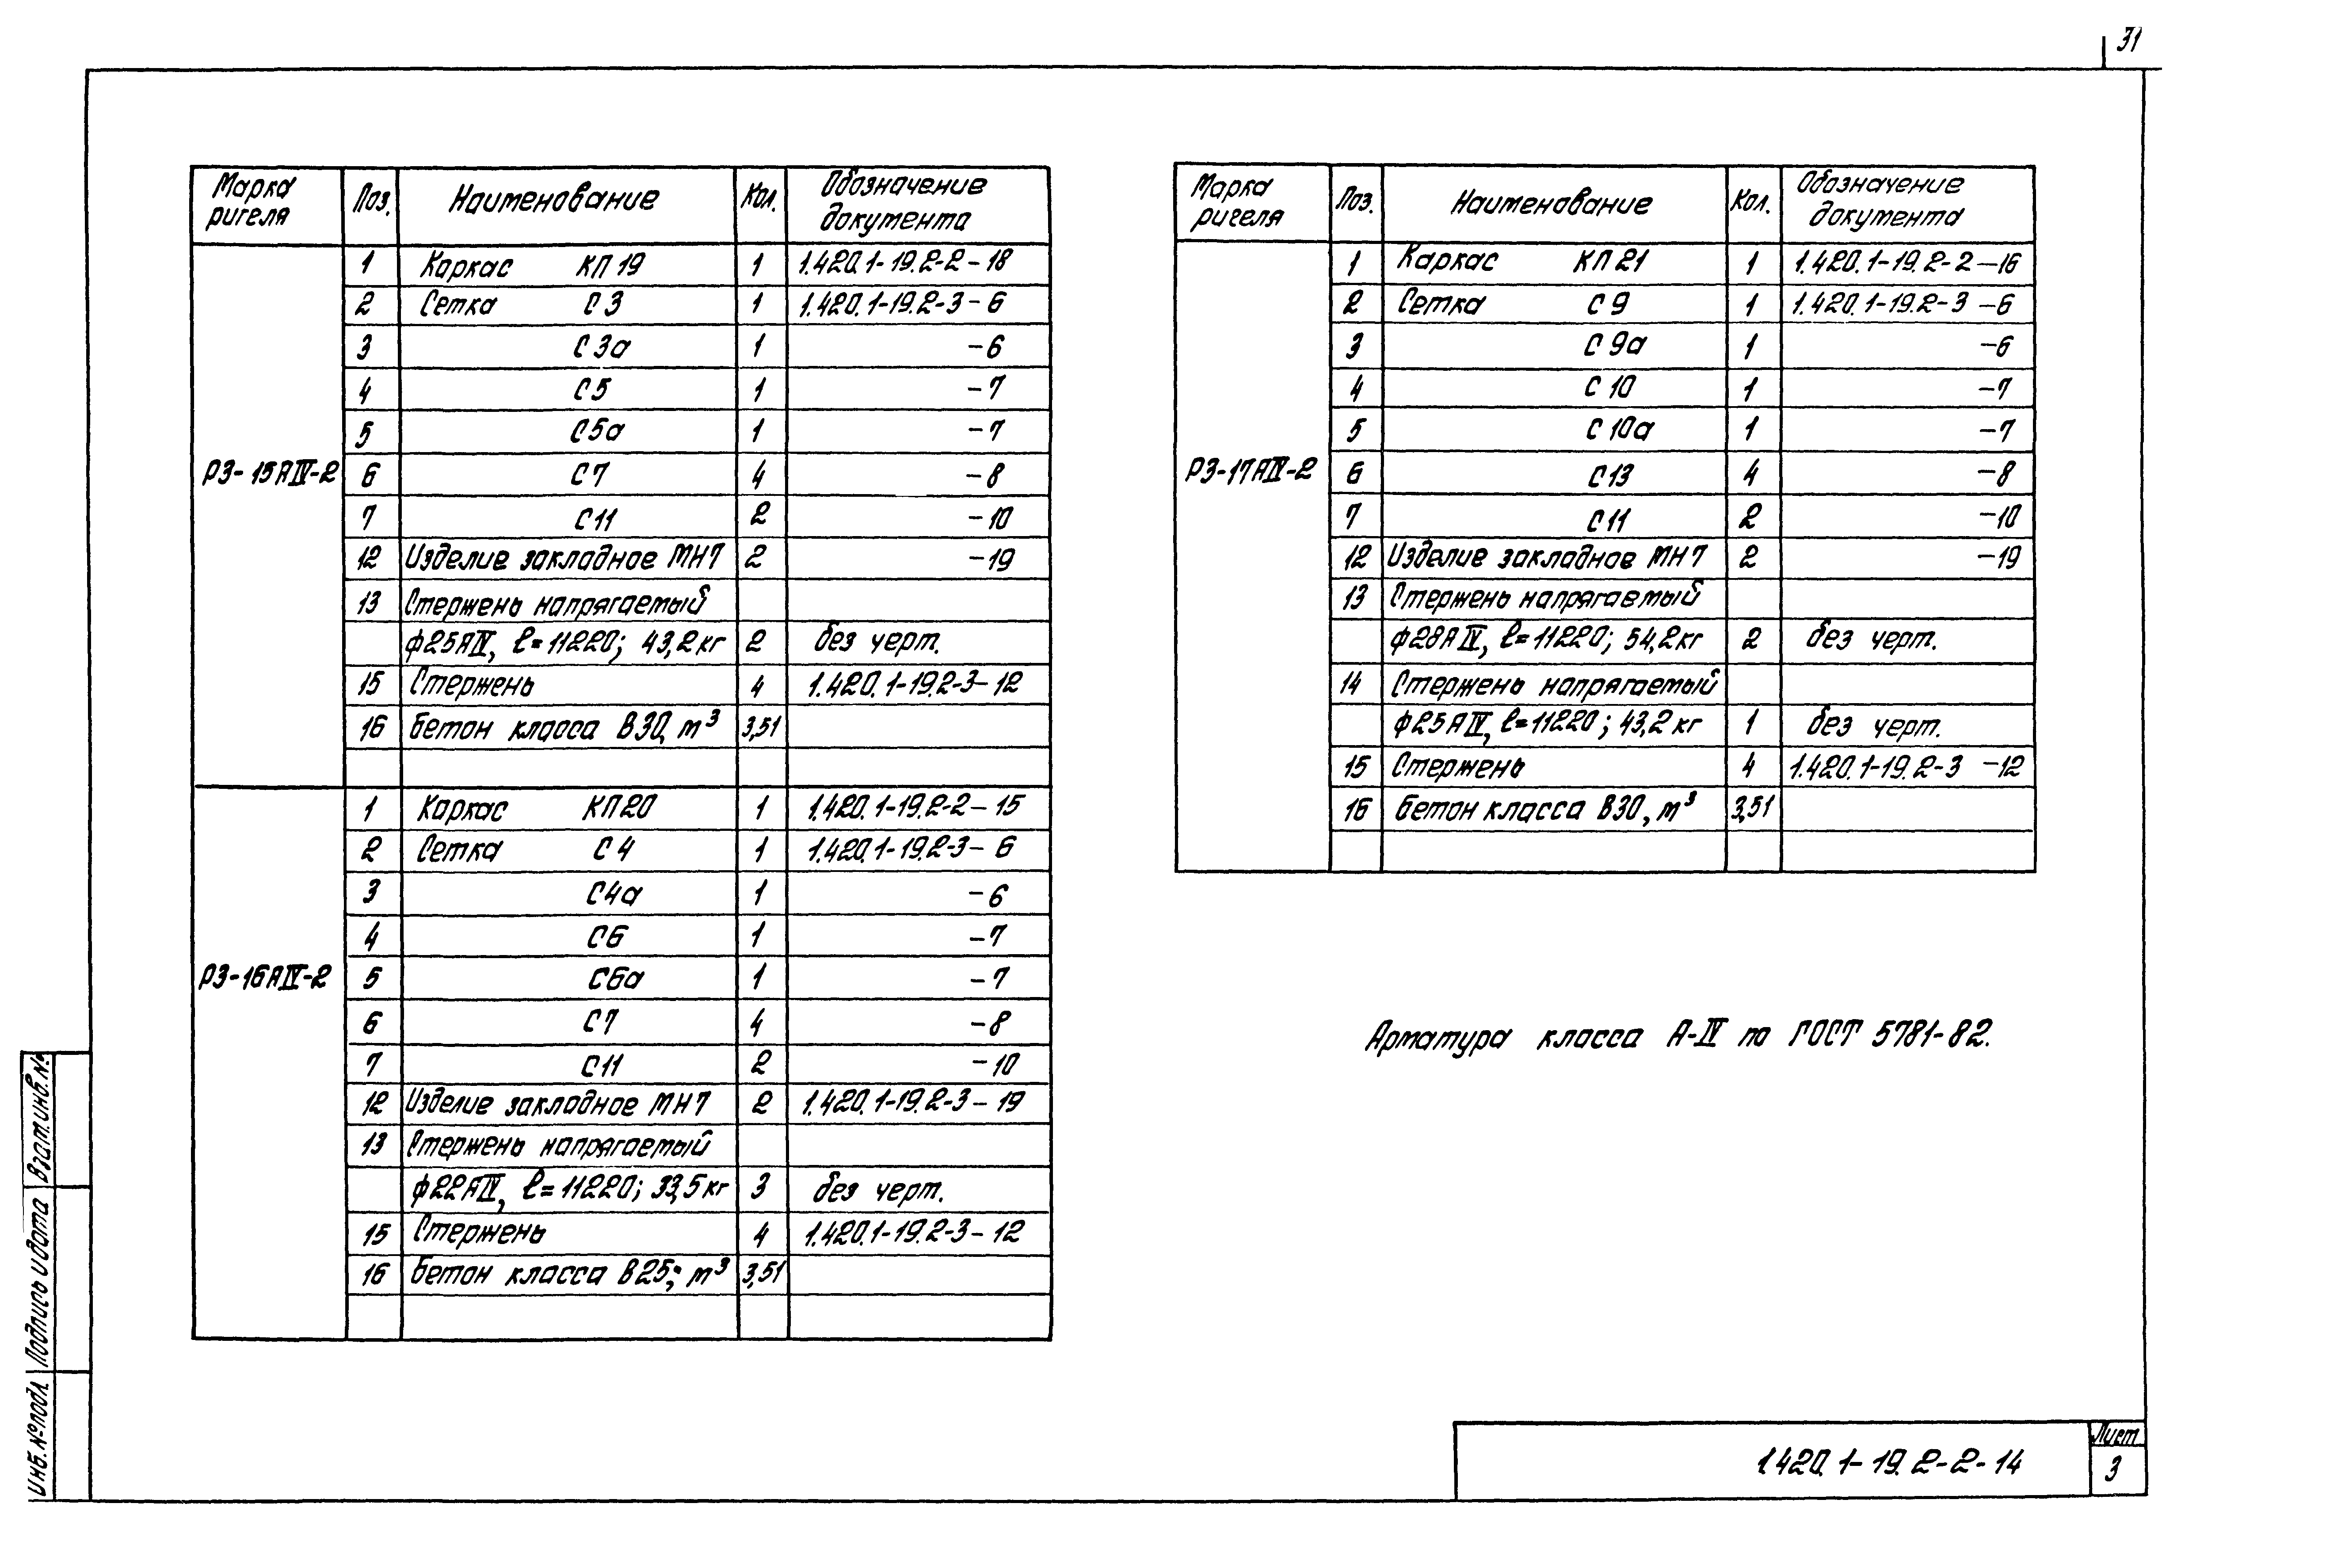 31
Марка ригеля Поз. Наименование Кол. Обозначение документа
РЗ-15АIV-2
1 Каркас КП19 1 1.420.1-19.2-2-18
2 Сетка С3 1 1.420.1-19.2-3-6
3 С3а 1 -6
4 С5 1 -7
5 С5а 1 -7
6 С7 4 -8
7 С11 2 -10
12 Изделие закладное МН7 2 -19
13 Стержень напрягаемый
ф25АIV, ℓ=11220; 43,2кг 2 без черт.
15 Стержень 4 1.420.1-19.2-3-12
16 Бетон класса В30, м³ 3,51
РЗ-16АIV-2
1 Каркас КП20 1 1.420.1-19.2-2-15
2 Сетка С4 1 1.420.1-19.2-3-6
3 С4а 1 -6
4 С6 1 -7
5 С6а 1 -7
6 С7 4 -8
7 С11 2 -10
12 Изделие закладное МН7 2 1.420.1-19.2-3-19
13 Стержень напрягаемый
ф22АIV, ℓ=11220; 33,5кг 3 без черт.
15 Стержень 4 1.420.1-19.2-3-12
16 Бетон класса В25; м³ 3,51
Марка ригеля Поз. Наименование Кол. Обозначение документа
РЗ-17АIV-2
1 Каркас КП21 1 1.420.1-19.2-2-16
2 Сетка С9 1 1.420.1-19.2-3-6
3 С9а 1 -6
4 С10 1 -7
5 С10а 1 -7
6 С13 4 -8
7 С11 2 -10
12 Изделие закладное МН7 2 -19
13 Стержень напрягаемый
ф28АIV, ℓ=11220; 54,2кг 2 без черт.
14 Стержень напрягаемый
ф25АIV, ℓ=11220; 43,2кг 1 без черт.
15 Стержень 4 1.420.1-19.2-3-12
16 Бетон класса В30, м³ 3,51
Арматура класса А-IV по ГОСТ 5781-82.
Взам.инв.№
Подпись и дата
Инв.№подл.
1.420.1-19.2-2-14
Лист
3